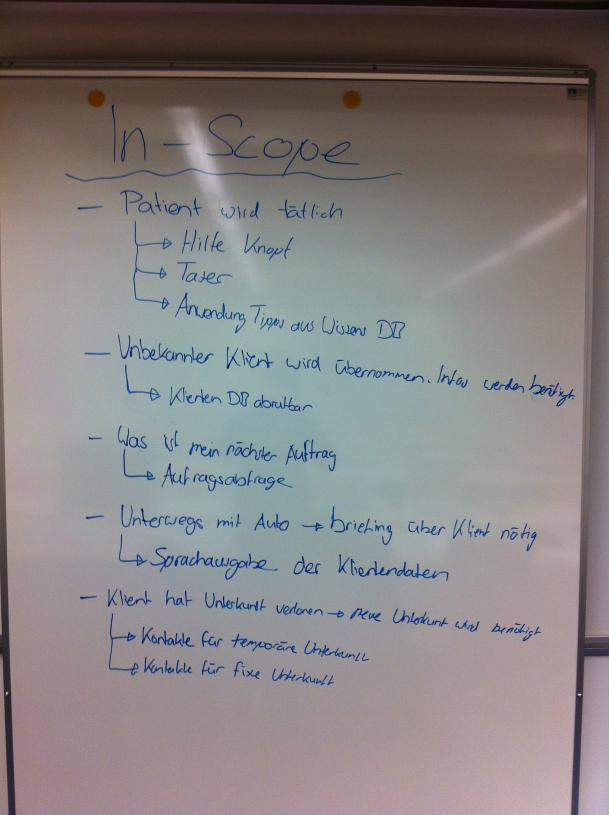 In-Scope
- Patient wird tätlich
Hilfe Knopf
Taser
Anwendung Tipps aus Wissens DB
- Unbekannter Klient wird übernommen. Infos werden benötigt.
Klienten DB abrufbar
- Was ist mein nächster Auftrag
Auftragsabfrage
- Unterwegs mit Auto → briefing über Klient nötig
Sprachausgabe der Klientendaten
- Klient hat Unterkunft verloren → neue Unterkunft wird benötigt
Kontakte für temporäre Unterkunft
Kontakte für fixe Unterkunft